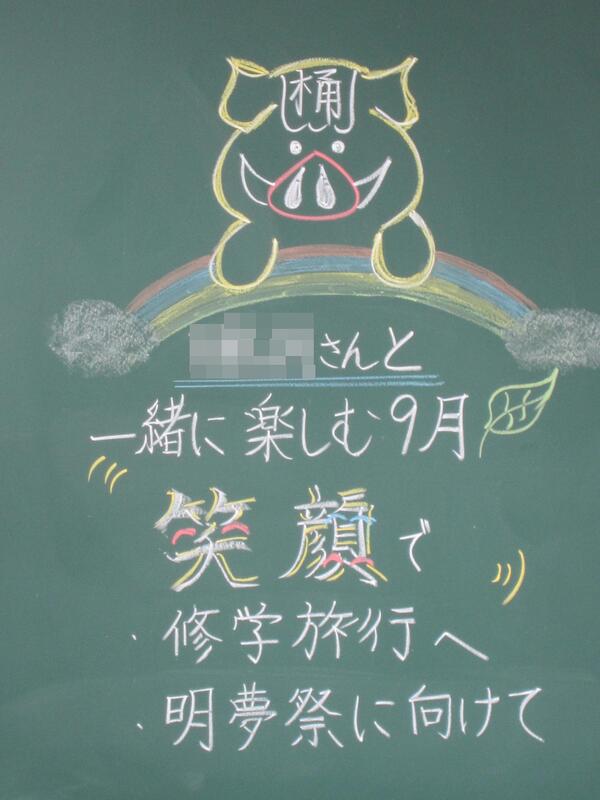 桶
さんと
一緒に楽しむ9月
笑顔で
・修学旅行へ
・明夢祭に向けて